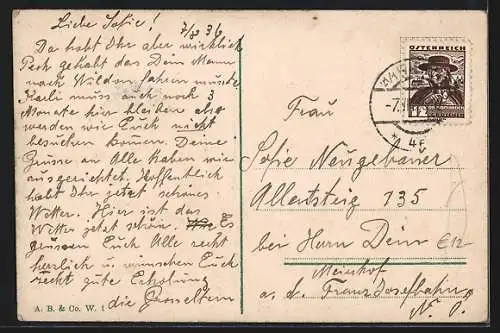 Liebe Sofie! 7/8 36
Da habt Ihr aber wirklich
Pech gehabt das Dein Mann
nach Wildon fahren musste
Karli muss auch noch 3
Monate hier bleiben also
werden wir Euch nicht
besuchen können. Deine
Grüsse an Alle haben wir
ausgerichtet. Hoffentlich
habt Ihr jetzt schönes
Wetter. Hier ist das
Wetter jetzt schön. Es
grüssen Euch Alle recht
herzlich u. wünschen Euch
recht gute Erholung
die Grosseltern
A. B. & Co. W. 1
ÖSTERREICH
12
-7.
4e
Frau
Sofie Neugebauer
Allentsteig 135
bei Herrn Deim
€12
Meinhof
a. d. Franz Josefbahn
N. Ö.